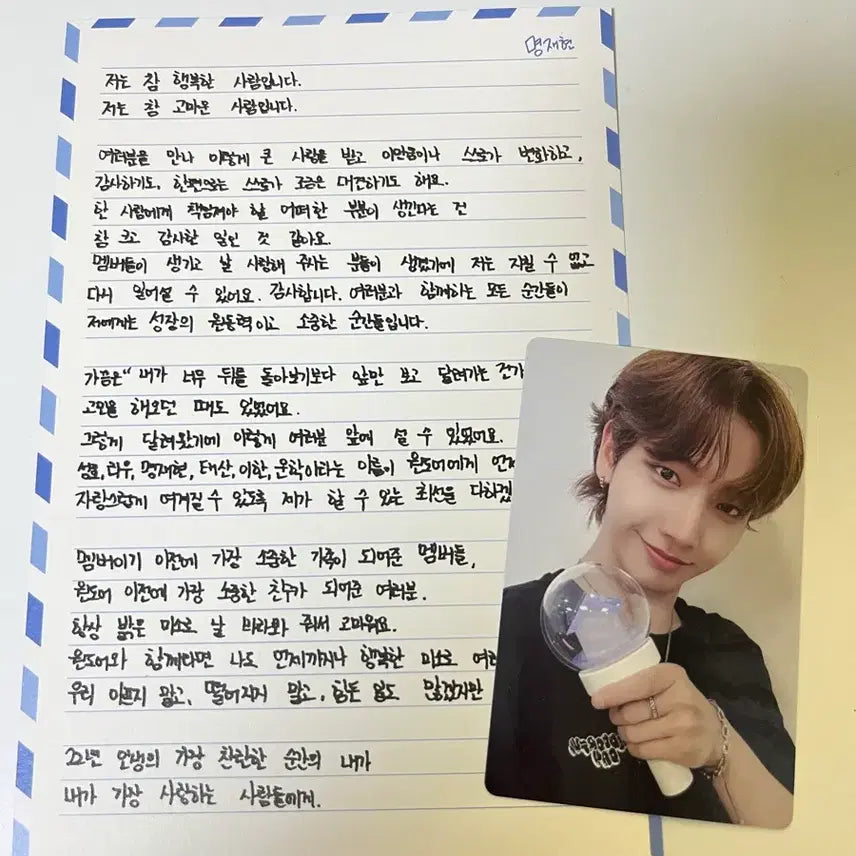 명재현
저는 참 행복한 사람입니다.
저는 참 고마운 사람입니다.
여러분을 만나 이렇게 큰 사랑을 받고 이만큼이나 스스로가 변화하고,
감사하기도, 한편으로는 스스로가 조금은 대견하기도 해요.
한 사람에게 책임져야 할 어떠한 부분이 생긴다는 건
참 크고 감사한 일인 것 같아요.
멤버들이 생기고 날 사랑해 주시는 분들이 생겼기에 저는 지칠 수 없고
다시 일어설 수 있어요. 감사합니다. 여러분과 함께하는 모든 순간들이
저에게는 성장의 원동력이고 소중한 순간들입니다.
가끔은 "내가 너무 뒤를 돌아보기보다 앞만 보고 달려가는 건가
고민을 해오던 때도 있었어요.
그렇게 달려왔기에 이렇게 여러분 앞에 설 수 있었어요.
성호, 리우, 명재현, 태산, 이한, 운학이라는 이름이 원도어에게 언제
자랑스럽게 여겨질 수 있도록 제가 할 수 있는 최선을 다하겠
멤버이기 이전에 가장 소중한 가족이 되어준 멤버들,
원도어 이전에 가장 소중한 친구가 되어준 여러분.
항상 밝은 미소로 날 바라봐 줘서 고마워요.
원도어와 함께라면 나도 언제까지나 행복한 미소로 여러
우리 아프지 말고, 떨어지지 말고, 힘든 일도 많겠지만
22년 인생의 가장 찬란한 순간의 내가
내가 가장 사랑하는 사람들에게.